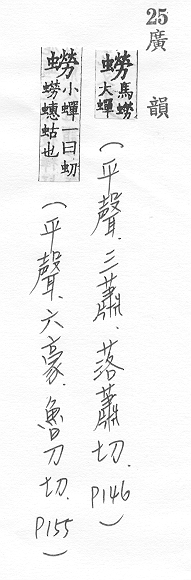 25 廣韻
蟧馬蟧大蟬(平聲.三蕭.落蕭切.P146)
蟧小蟬一曰虭蟧蟪蛄也(平聲.六豪.魯刀切.P155)